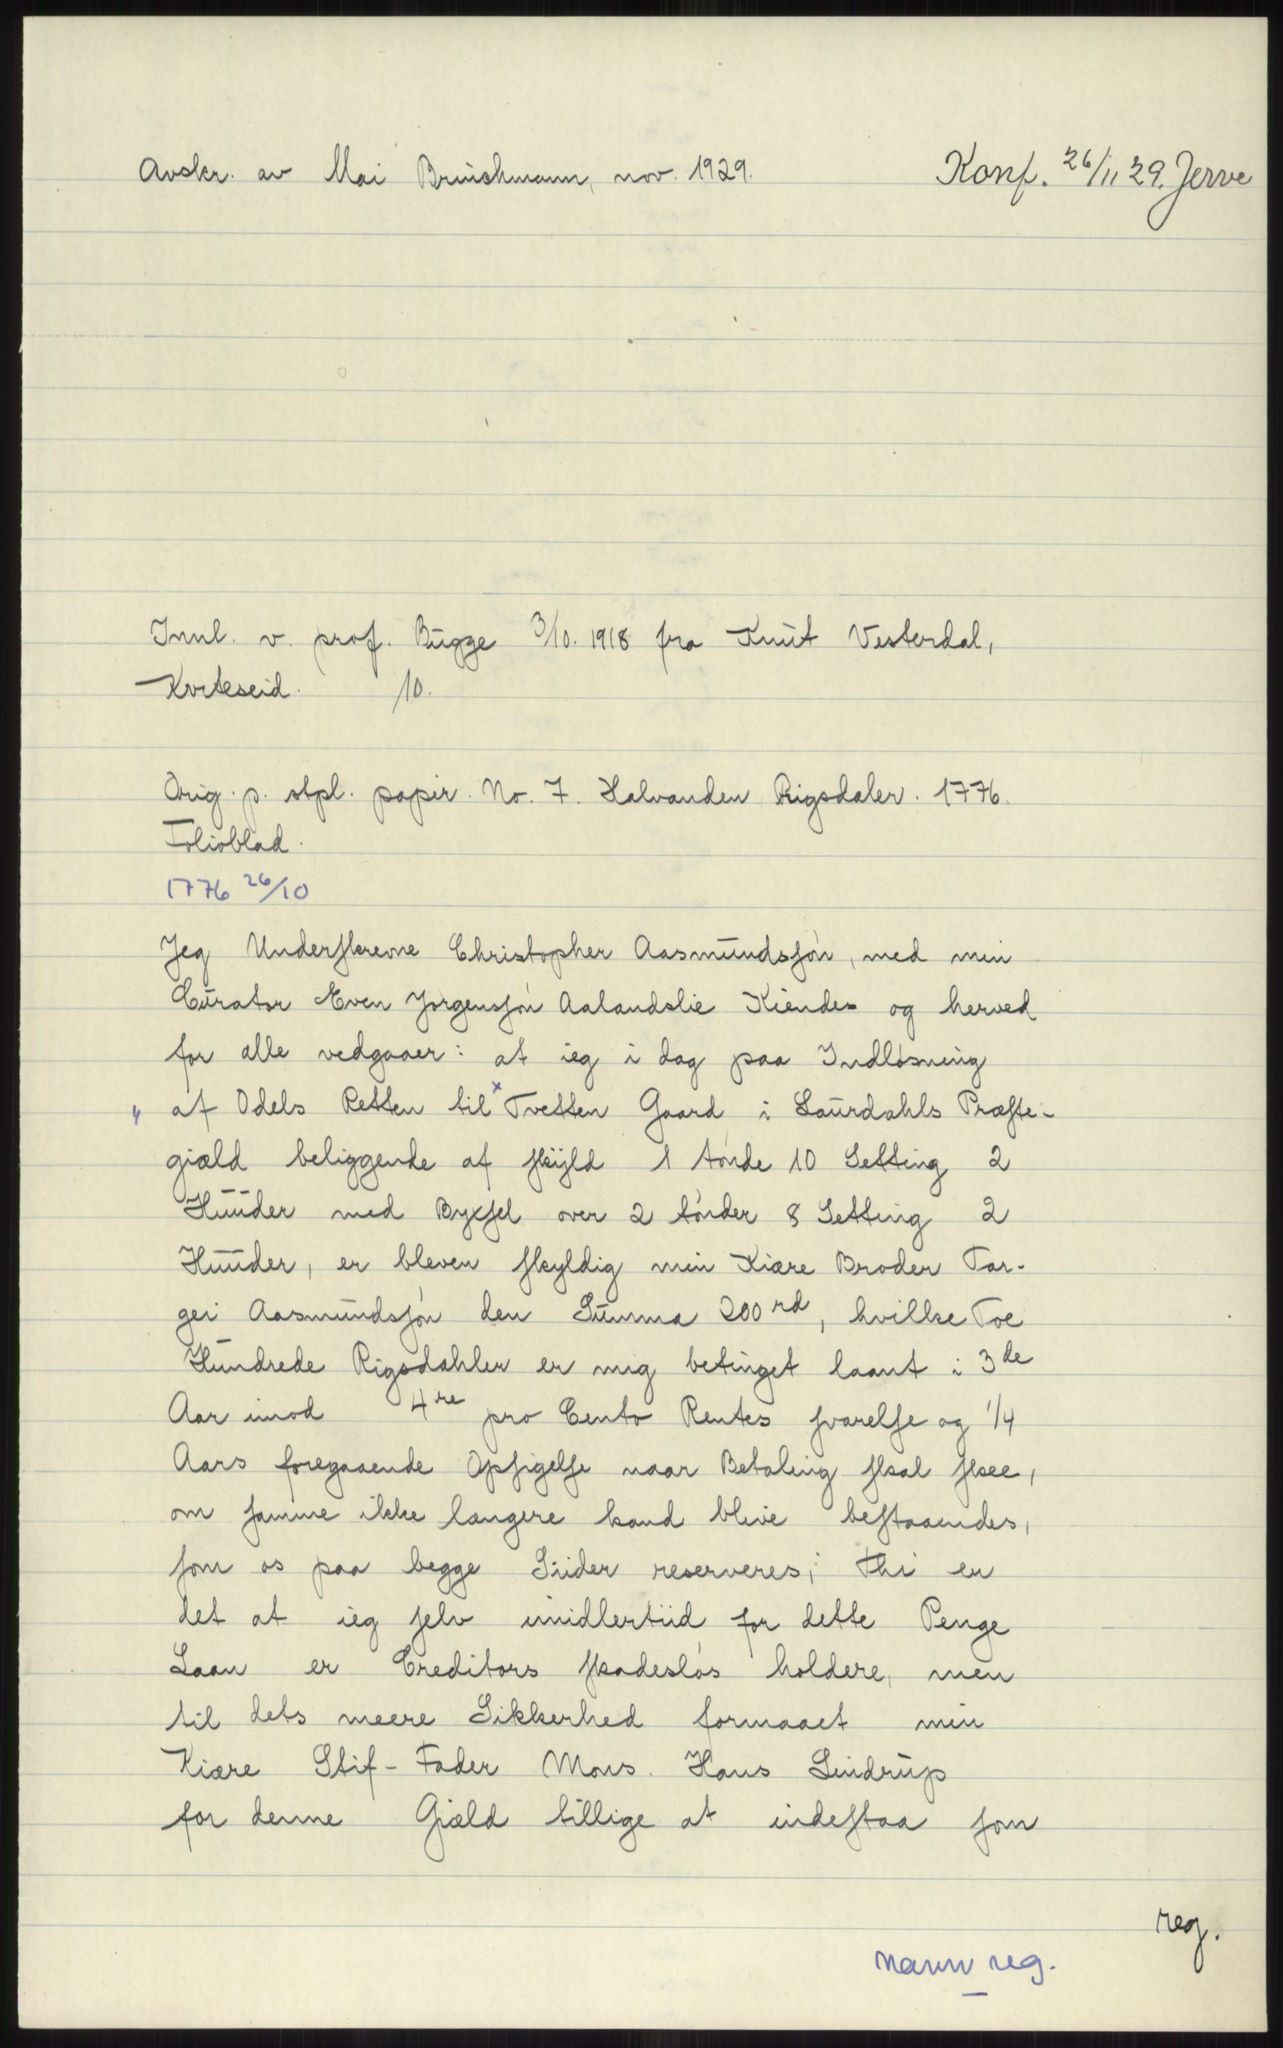 Avskr. av Mai Brinchmann, nov. 1929.
Konf. 26/11 29. Jerve
Innl. v. prof. Bugge 3/10. 1918 fra Knut Vesterdal,
Kviteseid. 10.
Orig. p. stpl. papir. No. 7. Halvanden Rigsdaler. 1776.
Folioblad.
1776 26/10
Jeg Underſkrevne Christopher Aasmundsſøn, med min
Curator Even Jørgensſøn Aalandslie Kiendes og herved
for alle vedgaaer: at ieg i dag paa Indløsning
" af Odels Retten til x Tvetten Gaard i Laurdahls Præſte-
giæld beliggende af ſkÿld 1 tønde 10 Setting 2
Huuder med Byxſel over 2 tønder 8 Setting 2
Huuder, er bleven ſkyldig min Kiære Broder Tar-
gei Aasmundsſøn den Summa 200 rd, hvilke Toe
Hundrede Rigsdahler er mig betinget laant i 3de
Aar imod 4re pro Cento Rentes ſvarelſe og 1/4
Aars foregaaende Opſigelſe naar Betaling ſkal ſkee,
om ſamme ikke længere kand blive beſtaaendes,
ſom os paa begge Siider reserveres; thi er
det at ieg ſelv imidlertiid for dette Penge
Laan er Creditors ſkadesløs holdere, men
til dets meere Sikkerhed formaaet min
Kiære Stif-Fader Mons. Hans Lindrup
for denne Giæld tillige at indeſtaa ſom
reg.
navn reg.